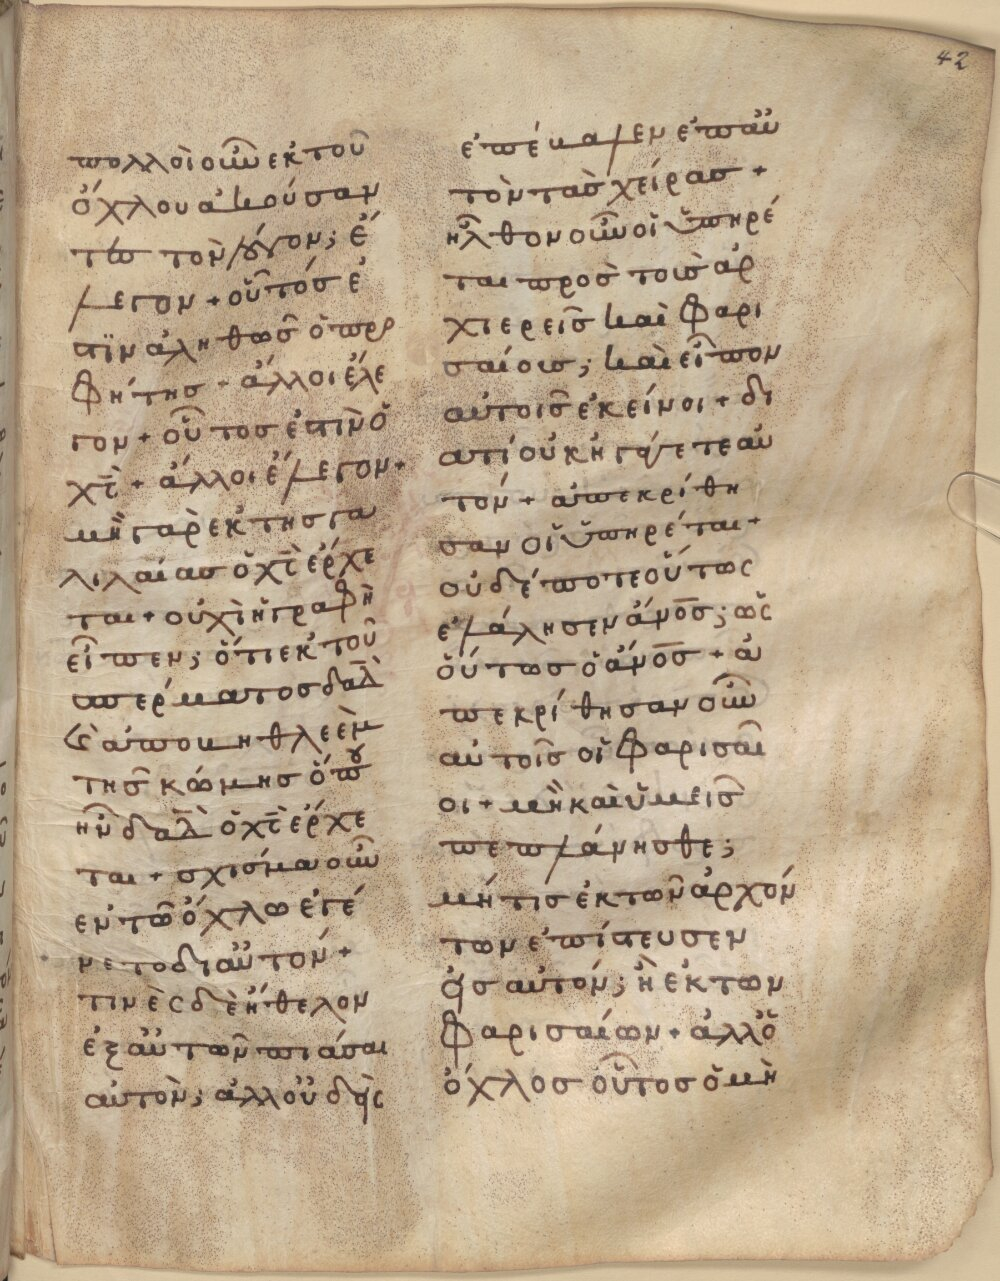 42
πολλοὶ οὖν ἐκ τοῦ
ὄχλου ἀκούσαν
τες τὸν λόγον; ἔ
λεγον + οὗτός ἐ
στϊν ἀληθῶς ὁ προ
φήτης + ἄλλοι ἔλε
γον + οὗτος ἐστὶν ὁ
χς̅ + ἄλλοι ἔλεγον +
μὴ γὰρ ἐκ τῆς γα
λιλαίας ὁ χς̅ ἔρχε
ται + οὐχὶ ἡ γραφὴ
εἶπεν; ὅτι ἐκ τοῦ
σπέρματος δα̅δ̅
κ̀ ἀπὸ βηθλεὲμ
τῆς κώμης ὅπου
ἦν δα̅δ̅ ὁ χς̅ ἔρχε
ται + σχίσμα οὖν
ἐν τῶ ὄχλω ἐγέ
νετο δι αὐτόν +
τινὲς δὲ ἤθελον
ἐξ αὐτῶν πιάσαι
αὐτὸν; ἀλλ οὐδεὶς
ἐπέβαλεν ἐπ αὐ
τὸν τὰς χείρας +
ἦλθον οὖν οἱ ὑπηρέ
ται πρὸς τοὺς ἀρ
χιερεῖς καὶ φαρι
σαίους; καὶ εἶπον
αὐτοῖς ἐκείνοι + δι
ατί οὐκ ἠγάγετε αὐ
τόν + ἀπεκρίθη
σαν οἱ ὑπηρέται +
οὐδέποτε οὕτως
ἐλάλησεν ἄνος̅; ὡς
οὕτως ὁ ἄνος̅ + ἀ
πεκρίθησαν οὖν
αὐτοῖς οἱ φαρισαῖ
οι + μὴ καὶ ὑμεῖς
πεπλάνησθε;
μή τις ἐκ τῶν ἀρχόν
των ἐπίστευσεν
εἰς αὐτόν; ἢ ἐκ τῶν
φαρισαίων + ἀλλ ὁ
ὄχλος οὗτος ὁ μὴ